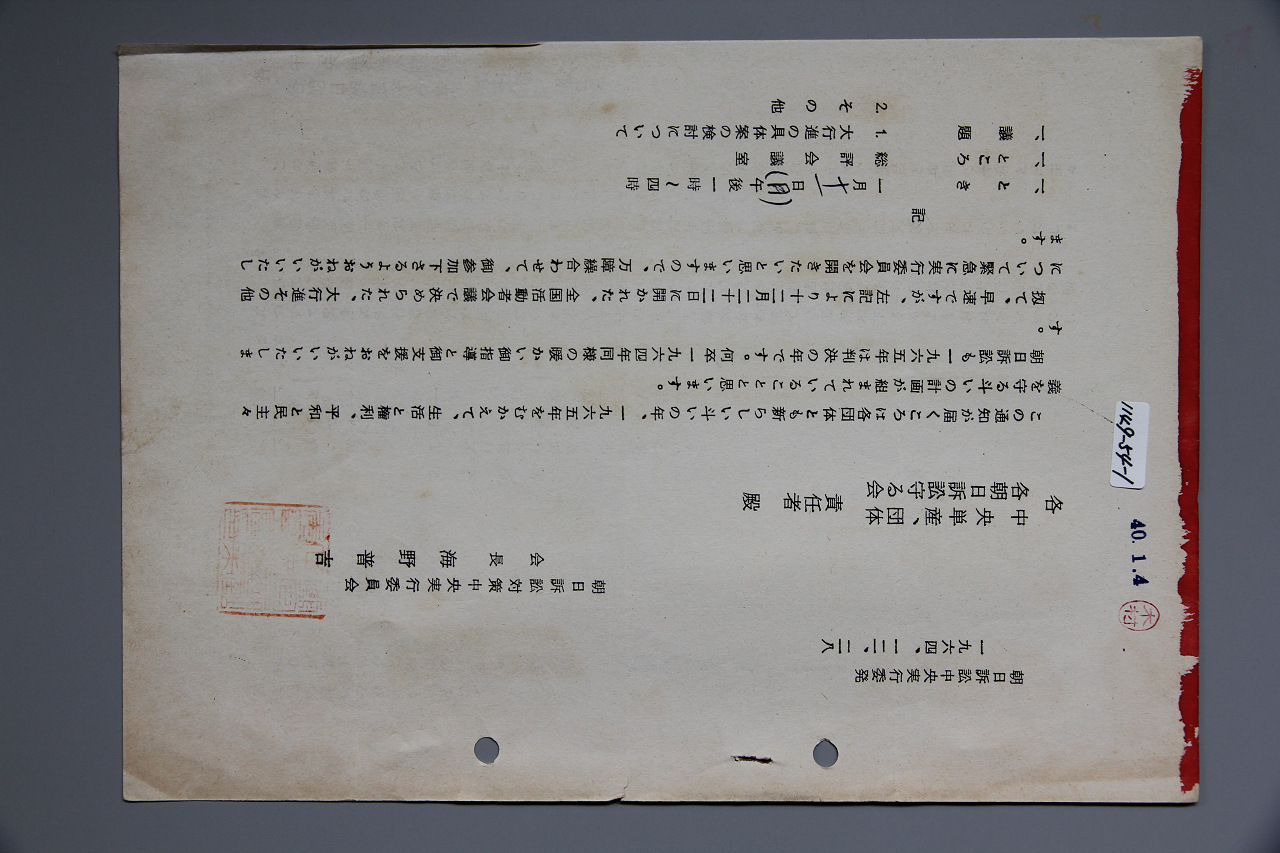 朝日訴訟中央実行委発
一九六四、一二、二八
朝日訴訟対策中央実行委員会
会長 海野普吉
中央単産、団体
各 責任者 殿
各朝日訴訟守る会
この通知が届くころは各団体とも新らしい斗いの年、一九六五年をむかえて、生活と権利、平和と民主々
義を守る斗いの計画が組まれていることと思います。
朝日訴訟も一九六五年は判決の年です。何卒一九六四年同様の暖かい御指導と御支援をおねがいいたしま
す。
扨て、早速ですが、左記により十二月二十二日に開かれた、全国活動者会議で決められた、大行進その他
について緊急に実行委員会を開きたいと思いますので、万障繰合わせて、御参加下さるようおねがいいたし
ます。
記
一、とき 一月十一日(月)午後一時〜四時
一、ところ 総評会議室
一、議題 1.大行進の具体案の検討について
2.その他
1149-54-1
40.1.4
木村